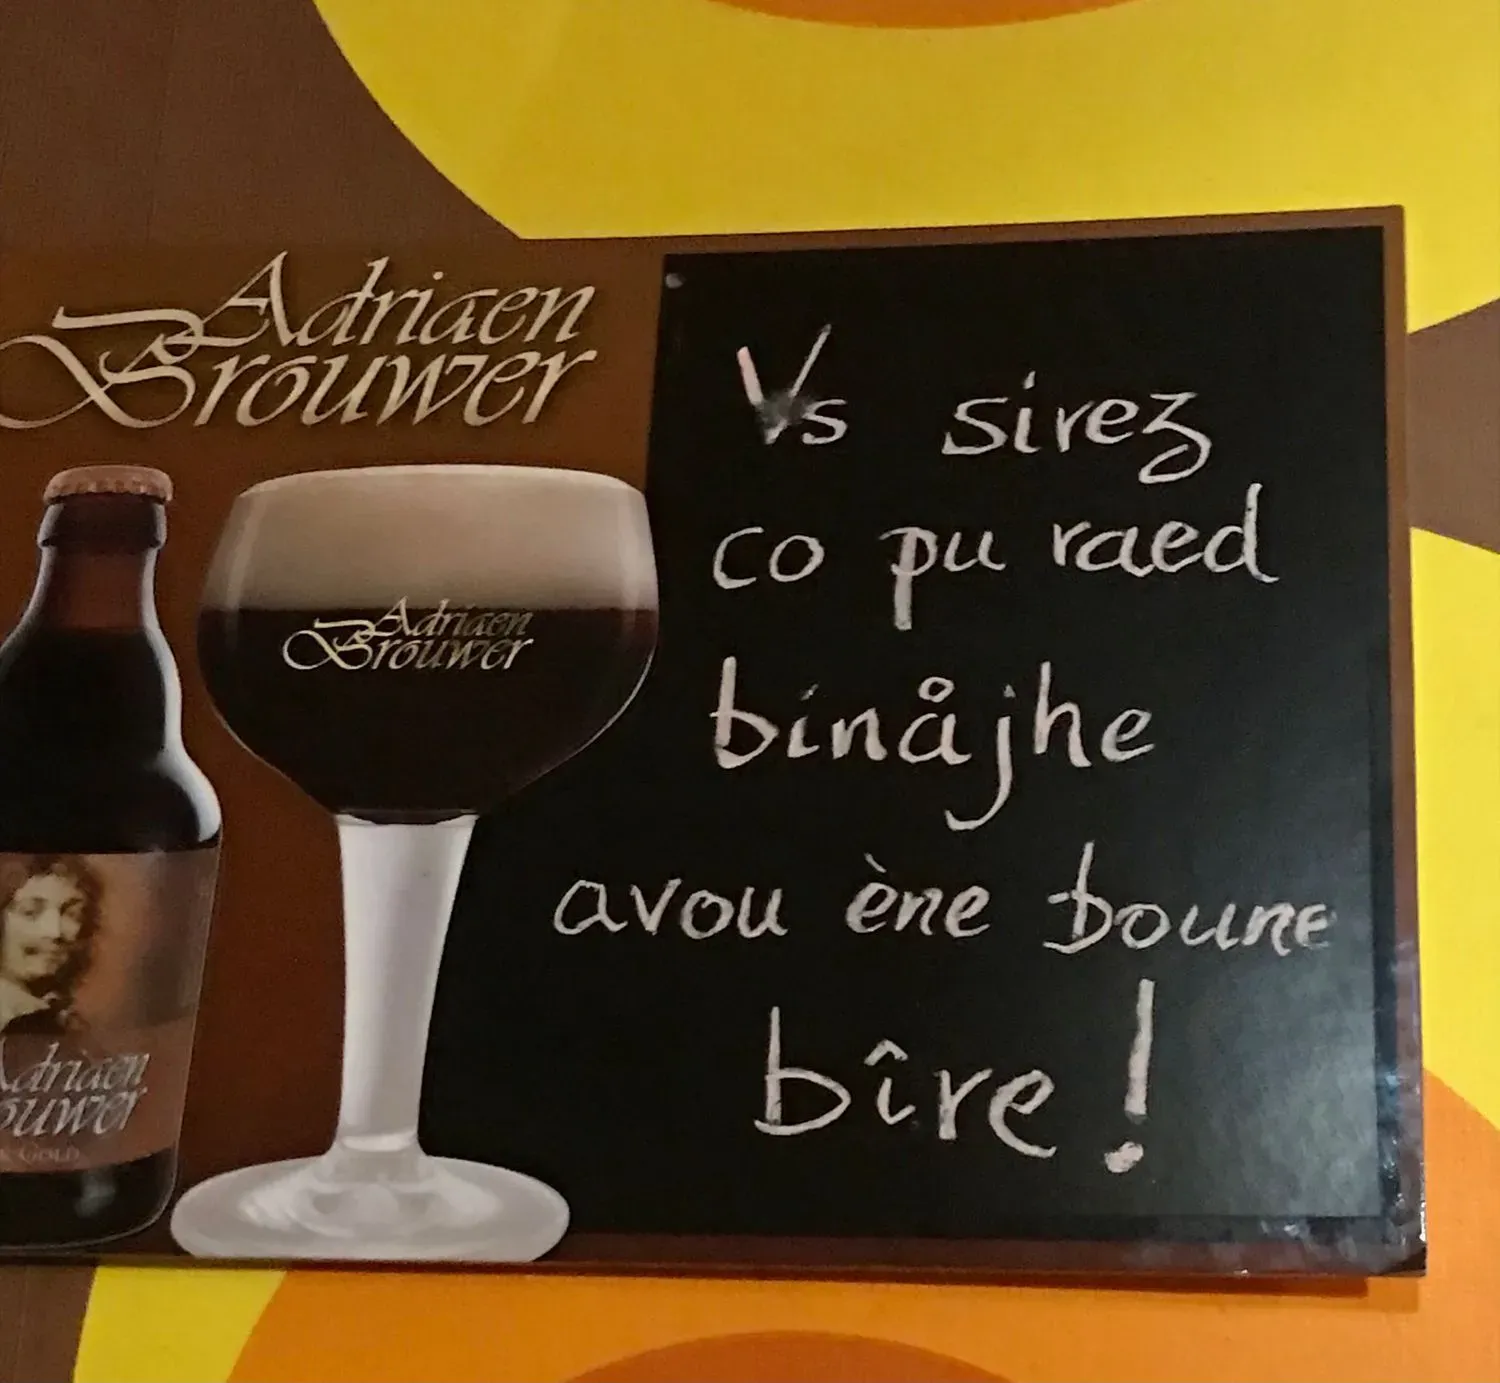 Adriaen
Brouwer
Adriaen
Brouwer
Adriaen
ouwer
GOLD
Vs sirez
co pu raed
binåjhe
avou ène boune
bîre!